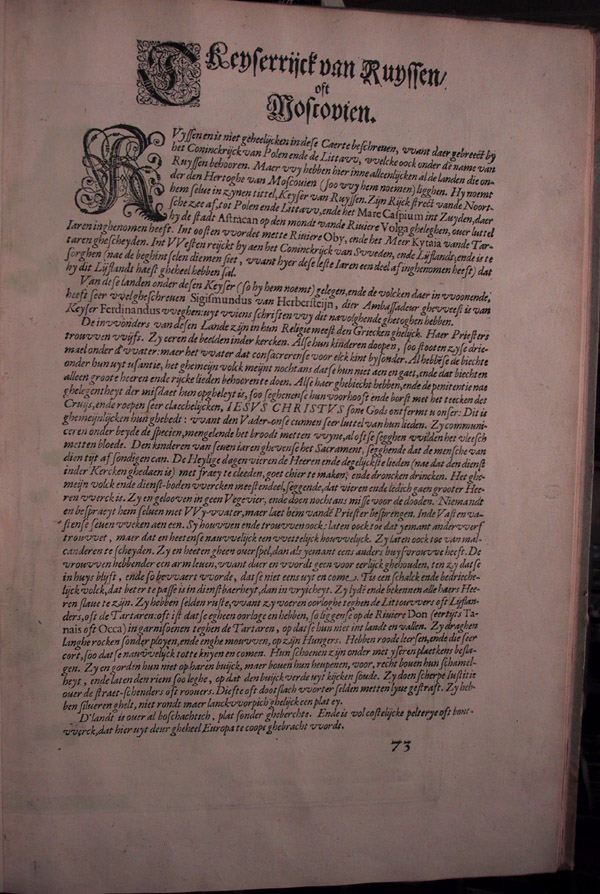 T Keyserrijck van Ruyssen/
oft
Moscovien.
RVyssen en is niet geheelijcken in dese Caerte beschreuen, vvant daer gebreect by
het Coninckrijck van Polen ende de Littavv, vvelcke oock onder dē name van
Ruyssen behooren. Maer vvy hebben hier inne alleenlijcken al de landen die on-
der den Hertoghe van Moscouien (soo vvy hem noemen) ligghen. Hy noemt
hem selue in zynen tittel, Keyser van Ruyssen. Zijn Rijck streckt vande Noort-
sche zee af, tot Polen ende Littavv, ende het Mare Caspium int Zuyden, daer
hy de stadt Astracan op den mondt vande Riuiere Volga gheleghen, ouer luttel
Iaren inghenomen heeft. Int oosten vvordet mette Riuiere Oby, ende het Meer Kytaia vande Tar-
taren ghescheyden. Int VVesten reijckt hy aen het Coninckrijck van Svveden, ende Lijflandt, ende is te
sorghen (nae de beghintselen diemen siet, vvant hy er dese leste Iaren een deel af inghenomen heeft) dat
hy dit Lijflandt haest gheheel hebben sal.
Van dese landen onder desen Keyser (so hy hem noemt) gelegen, ende de volcken daer in vvoonende,
heeft seer vvel gheschreuen Sigismundus van Herberstein, dier Ambassadeur ghevveest is van
Keyser Ferdinandus vveghen: uyt vviens schriften vvy dit navolghende ghetoghen hebben.
De invvonders van desen Lande zijn in hun Religie meest den Griecken ghelijck. Haer Priesters
trouvven vvijfs. Zy eeren de beelden inder kercken. Alse hun kinderen doopen, soo stooten zy se drie-
mael onder d'vvater: maer het vvater dat consacrerense voor elck kint bysonder. Al hebbēse de biechte
onder hun uyt usantie, het ghemeijn volck meijnt nochtans datse hun niet aen en gaet, ende dat biechten
alleen groote heeren ende rijcke lieden behoorente doen. Alse haer ghebiecht hebben, ende de penitentie nae
ghelegentheyt der misdaet hun opgheleyt is, soo seghenense hun voorhooft ende borst met het teecken det
Cruijs, ende roepen seer claechelijcken, IESVS CHRISTVS sone Gods ontfermt u onser: Dit is
ghemeijnlijcken hun ghebedt: vvant den Vader-onse cunnen seer luttel van hun lieden. Zy communi-
ceren onder beyde de specien, mengelende het broodt metten vvyne, al oftse segghen vvilden het vleesch
metten bloede. Den kinderen van seuen iaren ghevense het Sacrament, segghende dat de mensche van
dien tijt af sondigen can. De Heylige dagen vieren de Heeren ende degelijckste lieden (nae dat den dienst
inder Kercken ghedaen is) met fraey te cleeden, goet chier te maken, ende droncken drincken. Het ghe-
meijn volck ende dienst-boden vvercken meestendeel, seggende, dat vieren ende ledich gaen grooter Hee-
ren vverck is. Zy en gelooven in geen Vegevier, ende doen nochtans misse voor de dooden. Niemandt
en bespraeyt hem seluen met VVyvvater, maer laet hem vandē Priester besprengen. Inde Vasten va-
stense seuen vveken aen een. Sy houvven ende trouvven oock: laten oock toe dat yemant andervverf
trouvvet, maer dat en heetense nauvvelijck een vvettelijck houvvelijck. Zy laten oock toe van mal-
canderen te scheyden. Zy en heeten gheen ouerspel, dan als yemant eens anders huysvrouvve heeft. De
vrouvven hebbender een arm leuen, vvant daer en vvordt geen voor eerlijck ghehouden, ten zy datse
in huys blijft, ende so bevvaert vvorde, datse niet eens uyt en come. Tis een schalck ende bedrieche-
lijck volck, dat beter te passe is in dienstbaerheyt, dan in vryicheyt. Zy lydē ende bekennen alle haers Hee-
ren slaue te zijn. Zy hebben selden ruste, vvant zy voeren oorloghe teghen de Littouvvers oft Lijflan-
ders, oft de Tartaren: oft ist datse egheen oorloge en hebben, so liggense op de Riuiere Don (eertijts Ta-
nais oft Occa) in garnisoenen teghen de Tartaren, op datse hun niet int landt en vallen. Zy draghen
langhe rocken sonder ployen, ende enghe mouvven, op zijn Hungers. Hebben roode leersen, ende die seer
cort, soo datse nauvvelijck totte knijen en comen. Hun schoenen zijn onder met yseren plaetkens besla-
gen. Zy en gorden hun niet op haren buijck, maer bouen hun heupenen, voor, recht bouen hun schamel-
heyt, ende laten den riem soo leghe, op dat den buijck verde uyt kijcken soude. Zy doen scherpe Iustitie
ouer de straet-schenders oft roouers. Diefte oft dootslach vvorter selden metten lyue gestraft. Zy heb-
ben silueren ghelt, niet rondt maer lanckvvorpich ghelijck een plat ey.
D'landt is ouer al boschachtich, plat sonder gheberchte. Ende is vol costelijcke pelterye oft bont-
vverck, dat hier uyt deur gheheel Europa te coope ghebracht vvordt.
73